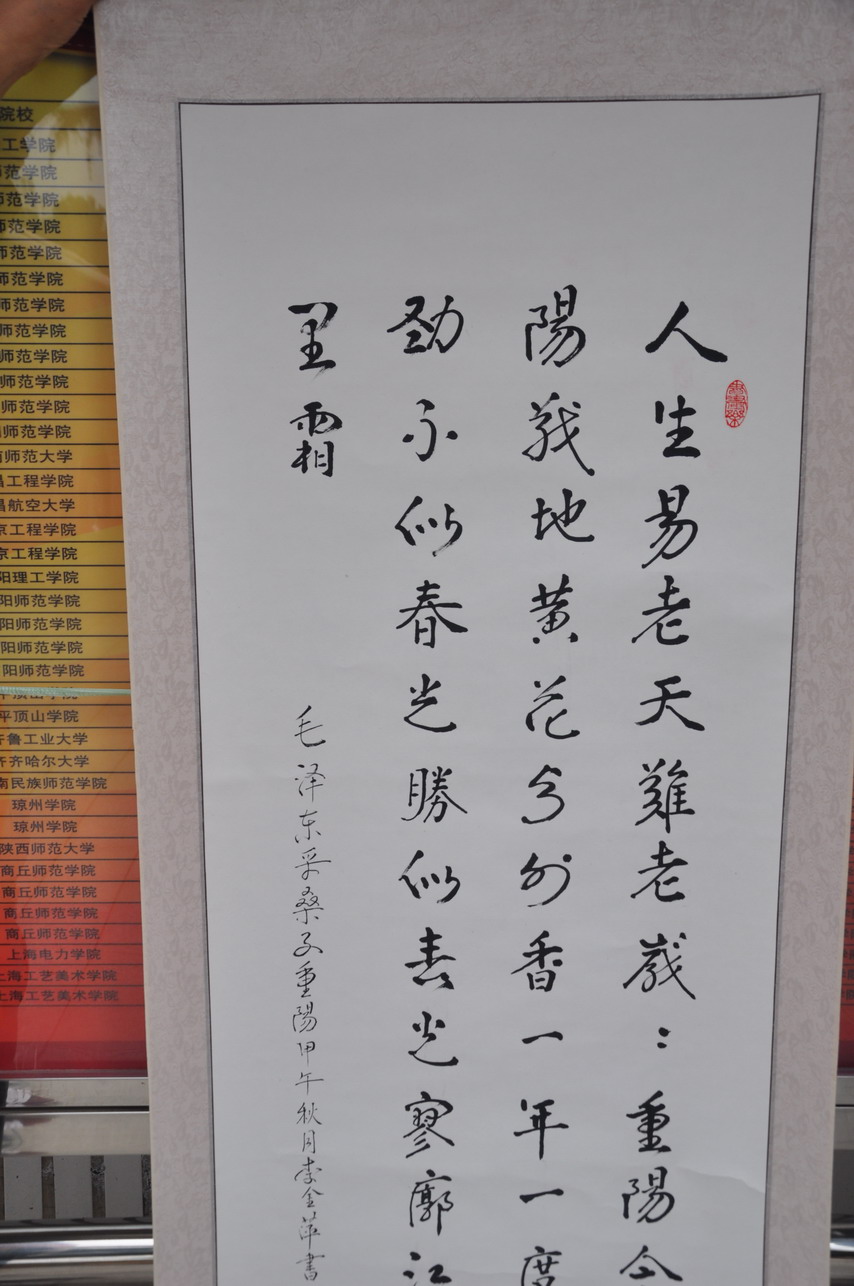 人生易老天難老歲：重陽今
陽戰地黄花分外香一年一度
勁不似春光勝似春光寥廓江
里霜
毛泽东采桑子重陽甲午秋月李金萍書
院校
工学院
师范学院
师范学院
师范学院
师范学院
师范学院
师范学院
师范学院
师范学院
师范学院
师范学院
师范学院
师范大学
工程学院
昌航空大学
京工程学院
京工程学院
阳理工学院
阳师范学院
阳师范学院
阳师范学院
阳师范学院
平顶山学院
平顶山学院
齐鲁工业大学
齐齐哈尔大学
南民族师范学院
琼州学院
琼州学院
陕西师范大学
商丘师范学院
商丘师范学院
商丘师范学院
商丘师范学院
上海电力学院
上海工艺美术学院
上海工艺美术学院